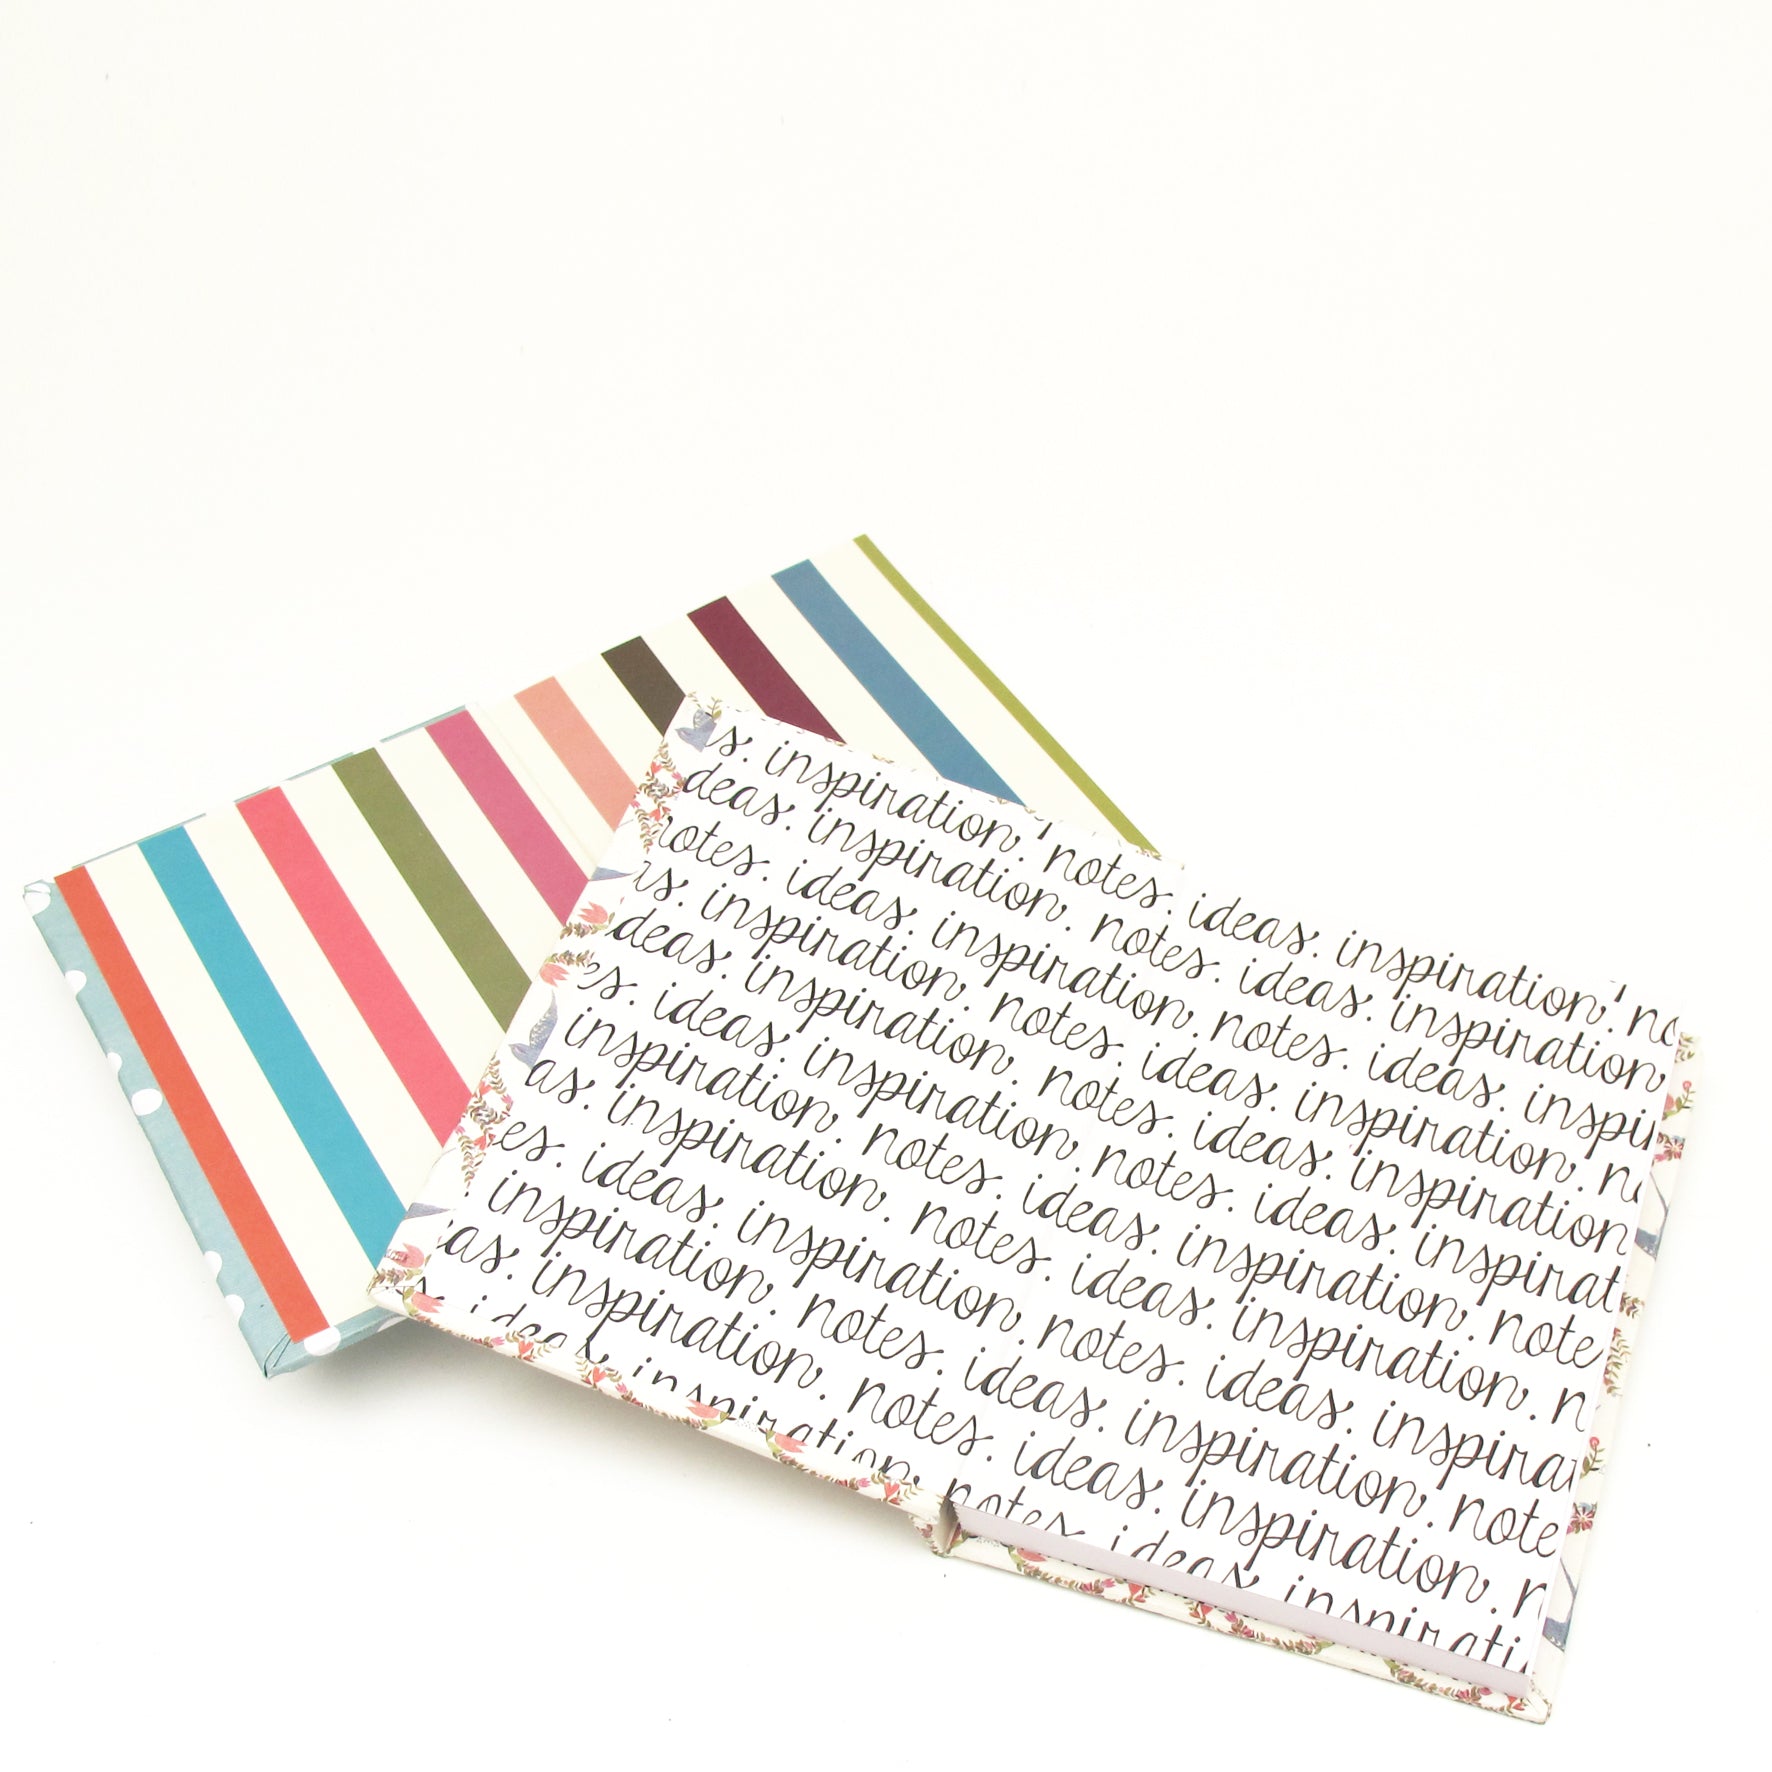 s. inspiration. notes. ideas. inspiration. no
deas. inspiration. notes. ideas. inspiration
otes. ideas. inspiration. notes. ideas. inspi
as. inspiration. notes. ideas. inspiration. n
deas. inspiration. notes. ideas. inspiration
es. ideas. inspiration. notes. ideas. inspirat
inspiration. notes. ideas. inspiration. note
as. inspiration. notes. ideas. inspiration. n
es. ideas. inspiration. notes. ideas. inspira
inspiration. notes. ideas. inspiration. note
as. inspiration. notes. ideas. inspiration. n
ideas. inspiration. notes. ideas. inspirati